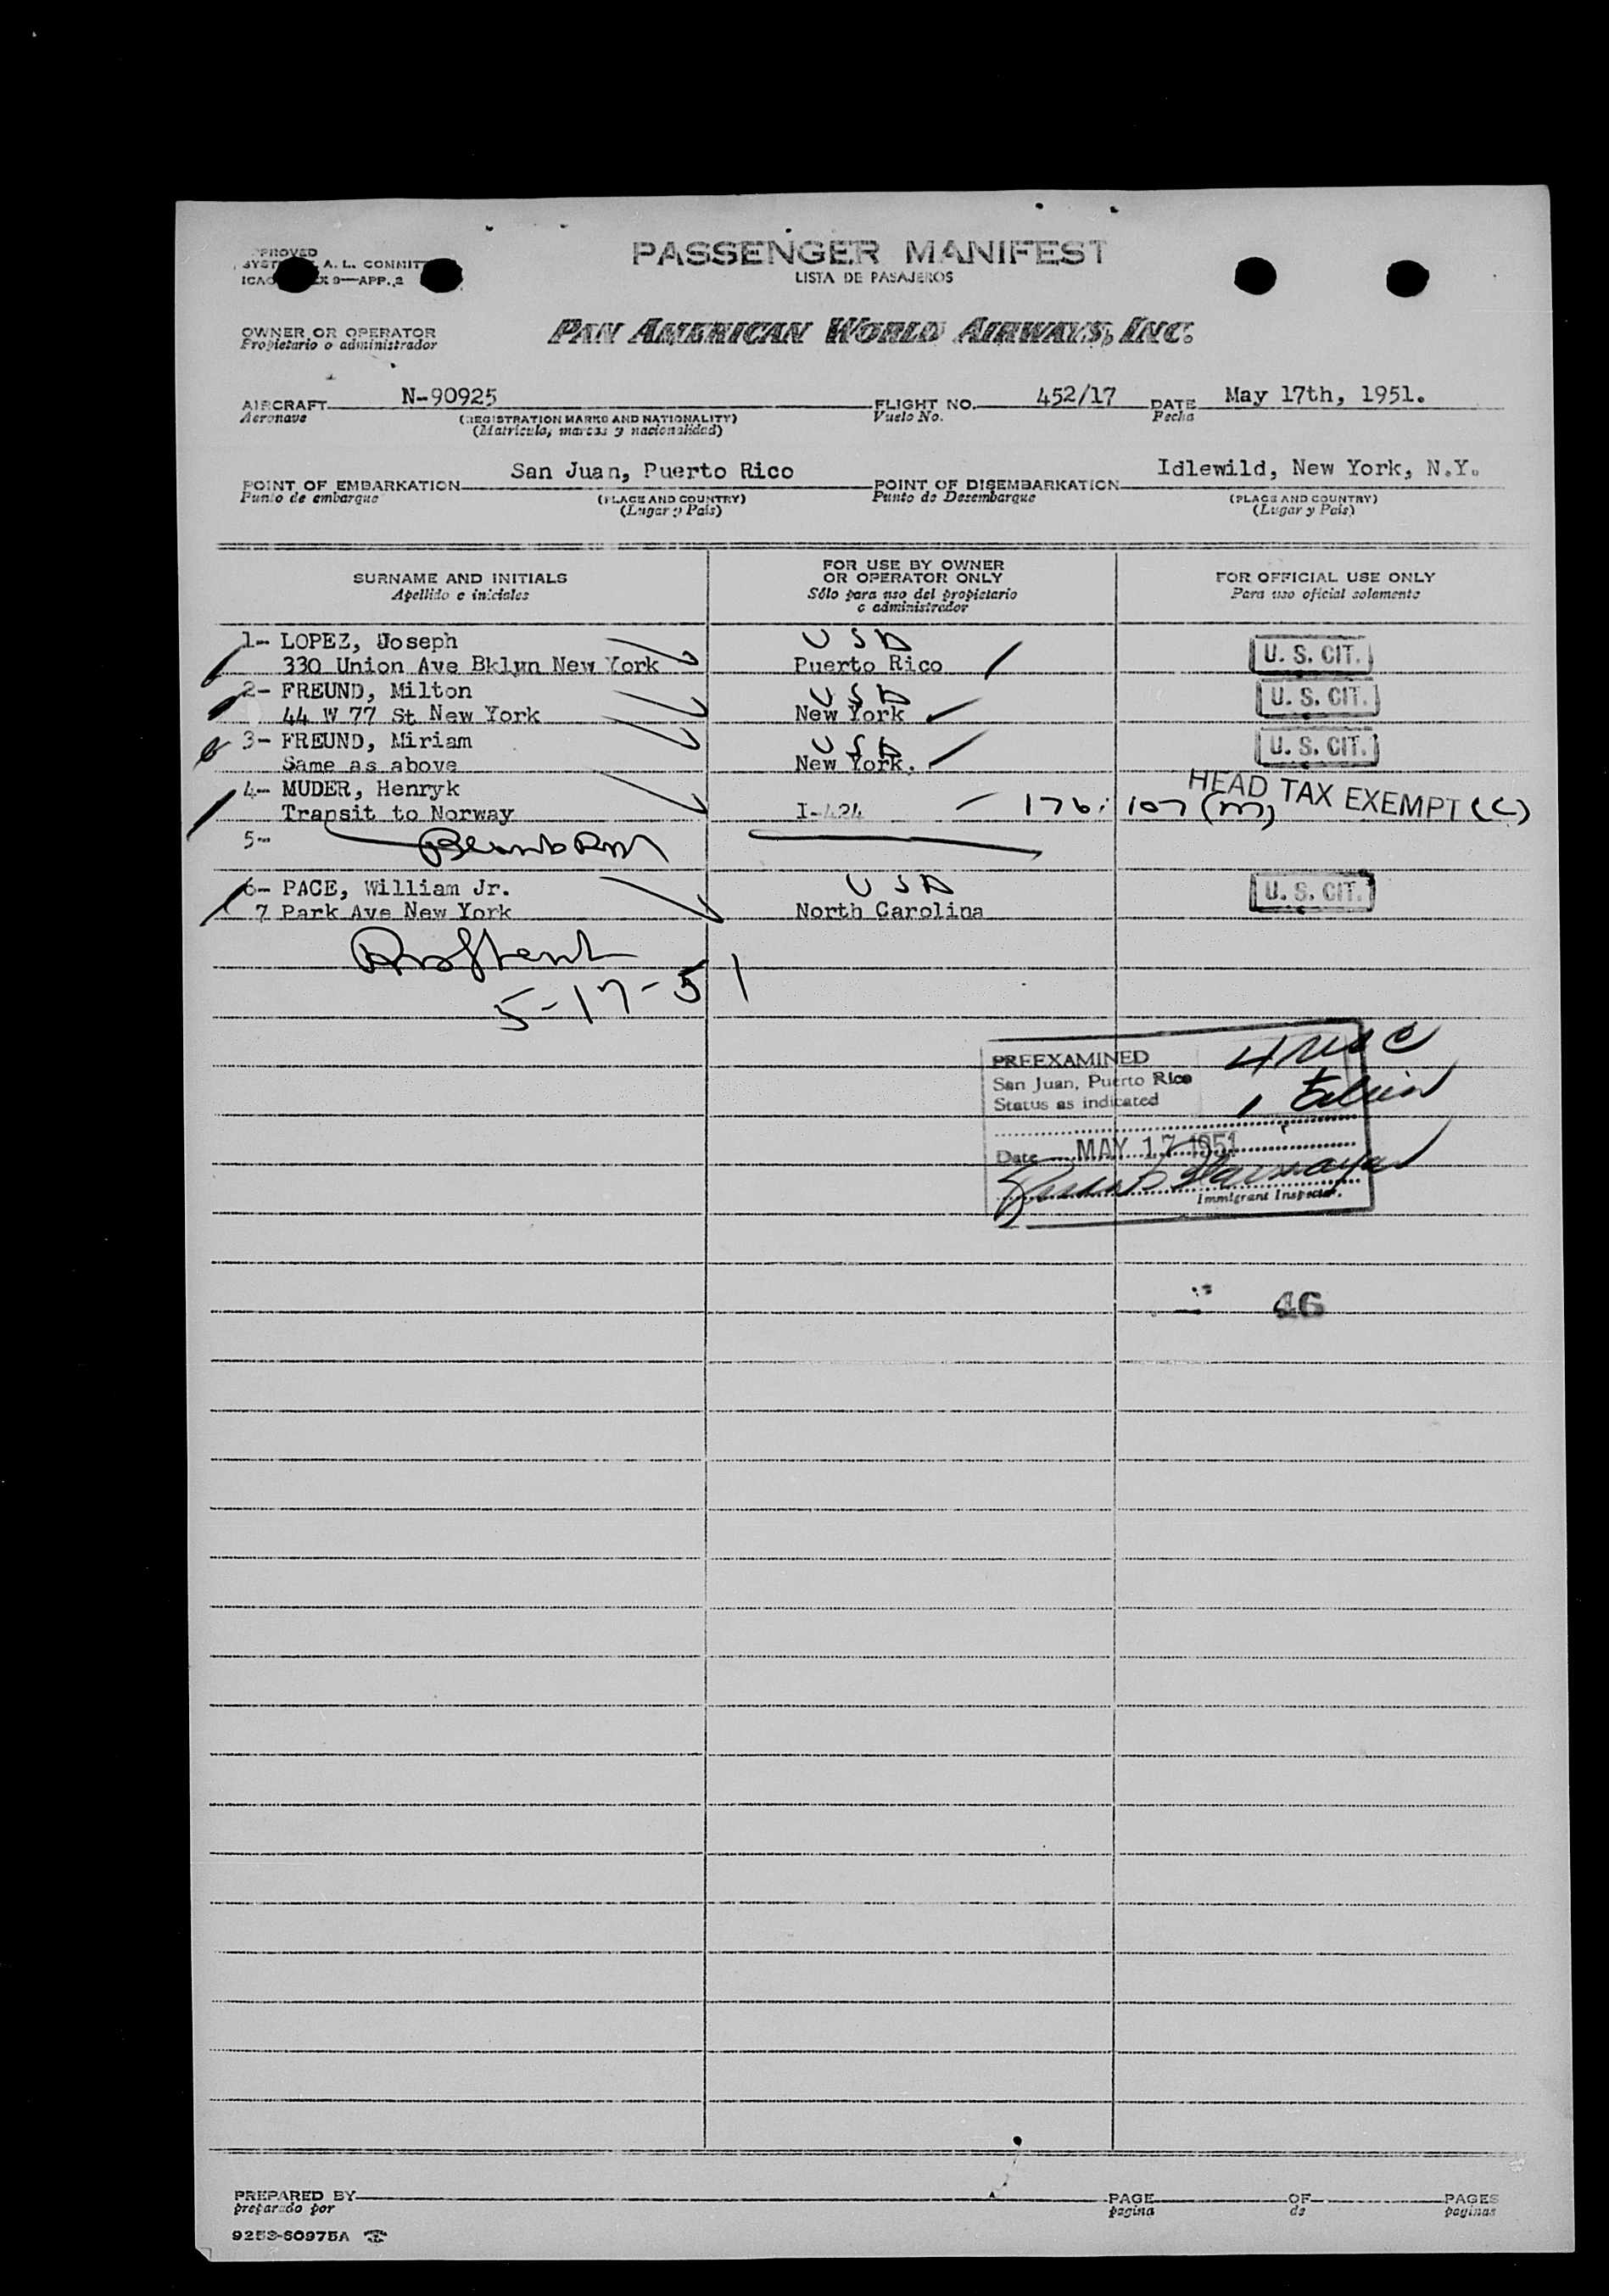 PASSENGER MANIFEST
LISTA DE PASAJEROS
A. L. COMMIT
9—APP. 2
OWNER OR OPERATOR
Propietario o administrador
PAN AMERICAN WORLD AIRWAYS, INC.
AIRCRAFT N-90925 FLIGHT NO. 452/17 DATE May 17th, 1951.
Aeronave (REGISTRATION MARKS AND NATIONALITY) Vuelo No. Fecha
(Matrícula, marcas y nacionalidad)
POINT OF EMBARKATION San Juan, Puerto Rico POINT OF DISEMBARKATION Idlewild, New York, N.Y.
Punto de embarque (PLACE AND COUNTRY) Punto de Desembarque (PLACE AND COUNTRY)
(Lugar y País) (Lugar y País)
SURNAME AND INITIALS
Apellido e iniciales
FOR USE BY OWNER
OR OPERATOR ONLY
Sólo para uso del propietario
o administrador
FOR OFFICIAL USE ONLY
Para uso oficial solamente
1- LOPEZ, Joseph USA U. S. CIT.
330 Union Ave Bklyn New York Puerto Rico
2- FREUND, Milton USA U. S. CIT.
44 W 77 St New York New York
3- FREUND, Miriam USA U. S. CIT.
Same as above New York.
4- MUDER, Henryk HEAD TAX EXEMPT (C)
Transit to Norway I-424 — 176. 107 (m)
5-
6- PACE, William Jr. USA U. S. CIT.
7 Park Ave New York North Carolina
5-17-51
PREEXAMINED 4 USC
San Juan, Puerto Rico
Status as indicated 1
Date MAY 17 1951
Immigrant Inspector.
46
PREPARED BY PAGE OF PAGES
preparado por pagina de paginas
9253-60975A